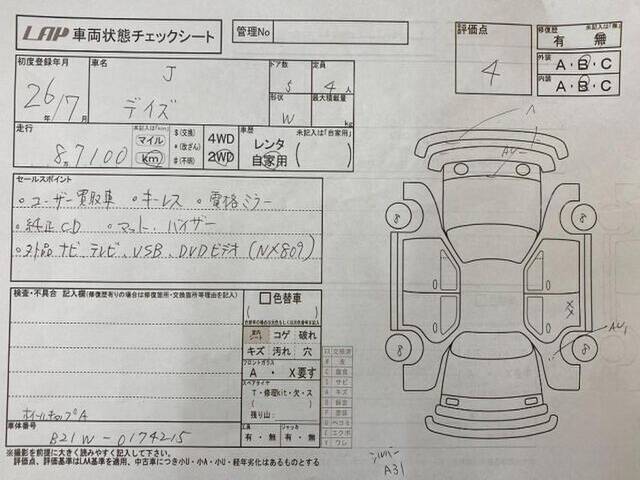 LAP 車両状態チェックシート
管理No
評価点
4
修復歴 未記入は「無」
有 ・ 無
外装 A・B・C
内装 A・B・C
初度登録年月
26年 7月
車名
J
デイズ
ドア数 5
定員 4人
形状 W
最大積載量 kg
走行 未記入は「km」
8万7100
マイル
km
$(交換)
*(改ざん)
#(不明)
4WD
2WD
車歴 未記入は「自家用」
レンタ
自家用
セールスポイント
・ユーザー買取車 ・キーレス ・電格ミラー
・純正CD ・マット、バイザー
・社外品ナビ テレビ、USB、DVDビデオ(NX809)
検査・不具合 記入欄(修復歴有りの場合は修復箇所・交換箇所等理由を記入)
色替車
コゲ 破れ
キズ 汚れ 穴
フロントガラス
A ・ X要す
スペアタイヤ
T・修理kit・欠・ス
残り山:
工具
有・無
ジャッキ
有・無
ホイールキャップA
車体番号
B21W-0174215
8
8
8
8
A
シルバー
A31
※撮影を前提に大きく読みやすく記入して下さい。
評価点、評価基準はLAA基準を適用、中古車につき小U・小A・小U・経年劣化はあるものとする